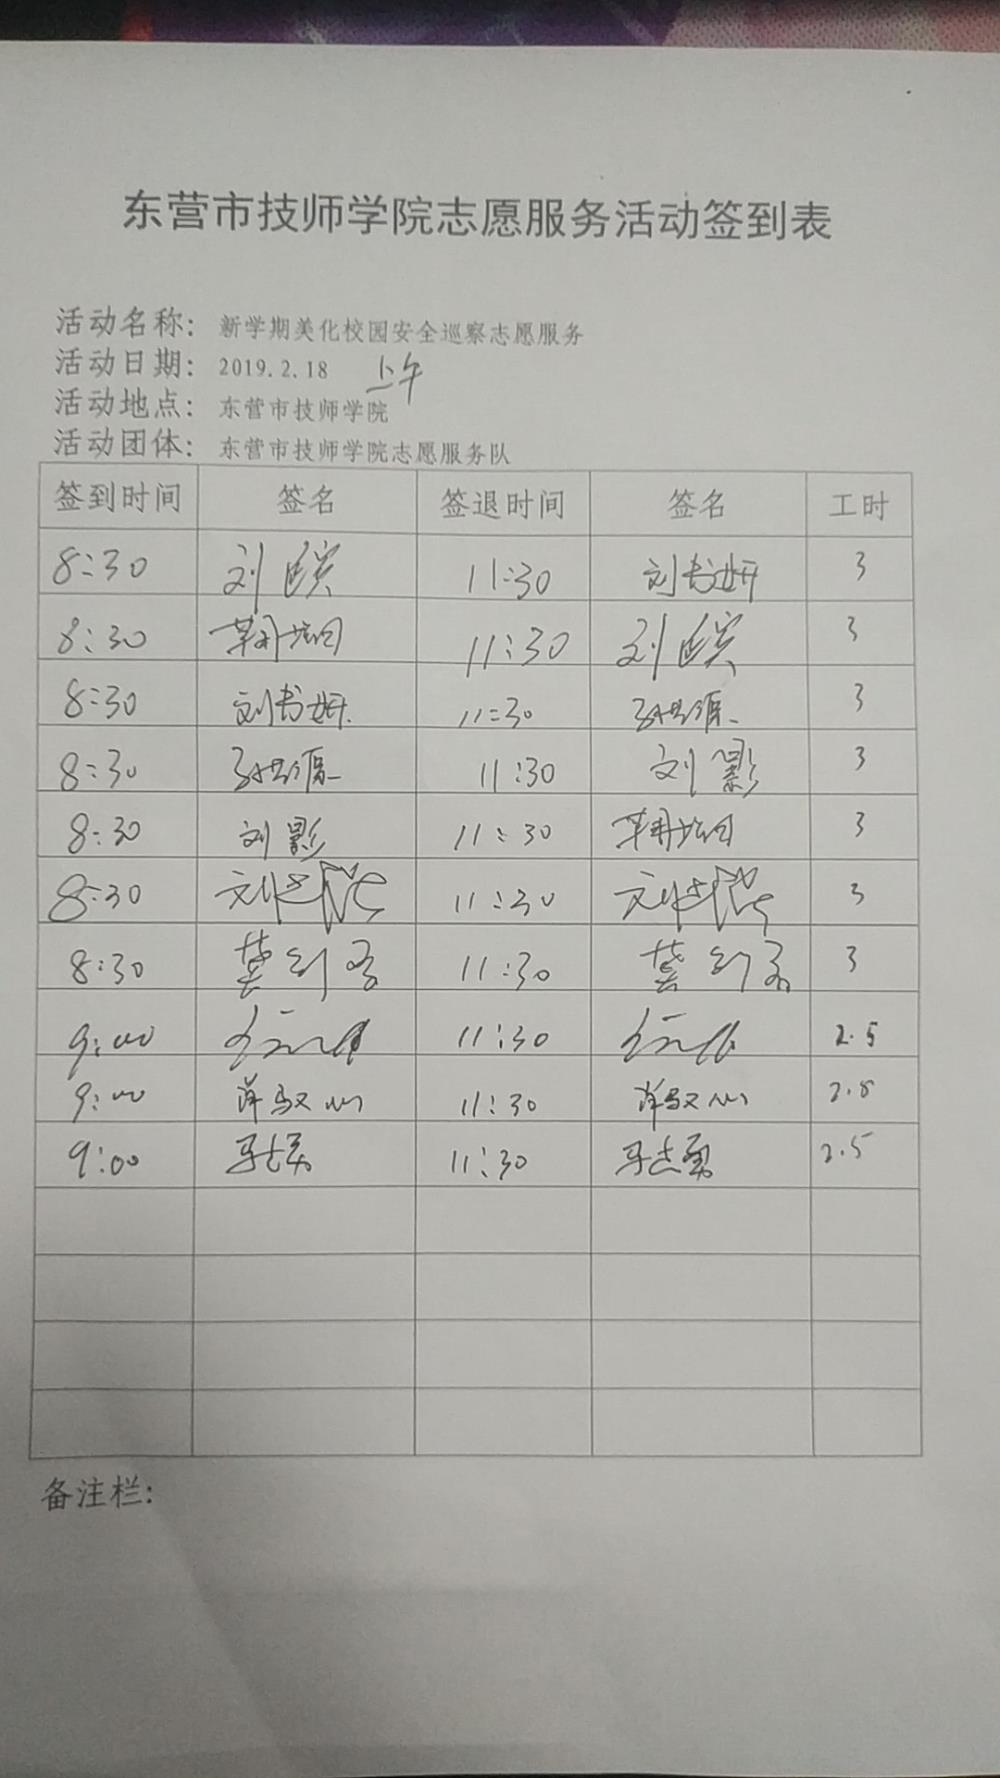 东营市技师学院志愿服务活动签到表
活动名称: 新学期美化校园安全巡察志愿服务
活动日期: 2019.2.18 上午
活动地点: 东营市技师学院
活动团体: 东营市技师学院志愿服务队
签到时间 签名 签退时间 签名 工时
8:30 刘 11:30 刘书妍 3
8:30 11:30 刘 3
8:30 刘书妍 11:30 3
8:30 11:30 刘影 3
8:30 刘影 11:30 3
8:30 刘 11:30 刘 3
8:30 龚 11:30 龚 3
9:00 11:30 2.5
9:00 11:30 2.5
9:00 马志勇 11:30 马志勇 2.5
备注栏: